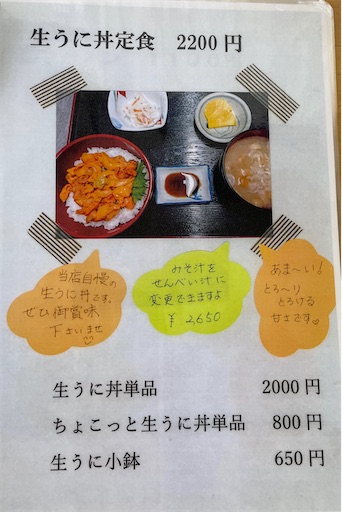 生うに丼定食　2200円
当店自慢の
生うに丼です。
ぜひ御賞味
下さいませ
みそ汁を
せんべい汁に
変更できますよ
¥ 2,650
あま〜い!
とろ〜り
とろける
甘さです。
生うに丼単品　2000円
ちょこっと生うに丼単品　800円
生うに小鉢　650円